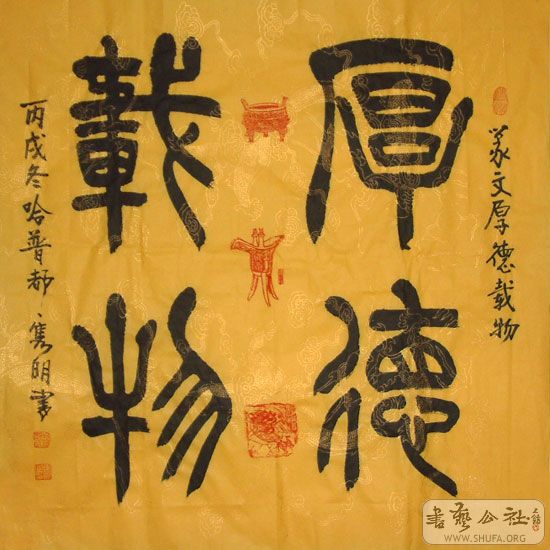 篆文厚德载物
厚德
載物
丙戌冬哈普都隽明書
書藝公社
WWW.SHUFA.ORG